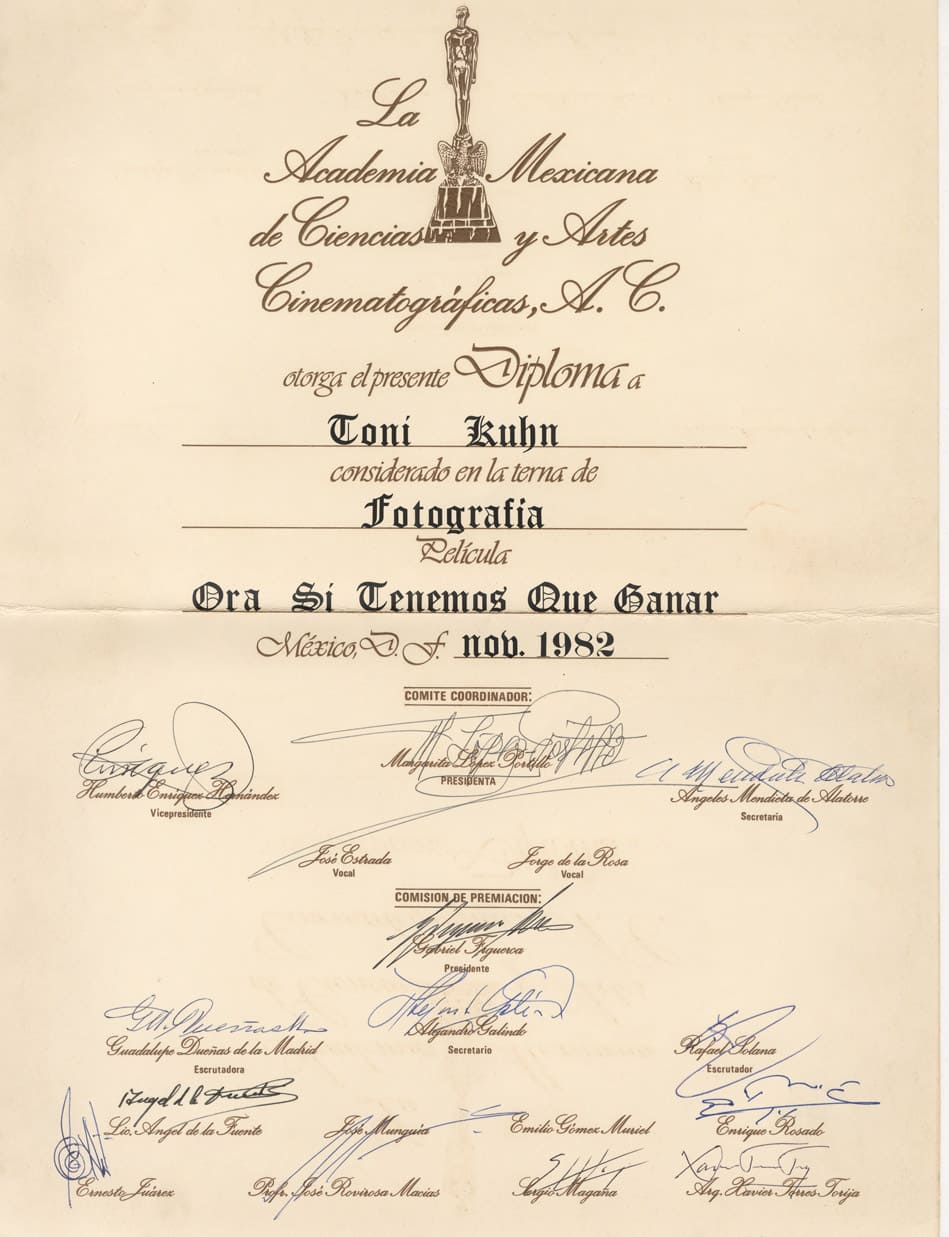 La
Academia Mexicana
de Ciencias y Artes
Cinematográficas, A. C.
otorga el presente Diploma a
Toni Kuhn
considerado en la terna de
Fotografía
Película
Ora Sí Tenemos Que Ganar
México, D. F. nov. 1982
COMITE COORDINADOR:
Margarita López Portillo
PRESIDENTA
Humberto Enríquez Hernández
Vicepresidente
Ángeles Mendieta de Alatorre
Secretaria
José Estrada Jorge de la Rosa
Vocal Vocal
COMISION DE PREMIACION:
Gabriel Figueroa
Presidente
Alejandro Galindo
Secretario
Guadalupe Dueñas de la Madrid
Escrutadora
Rafael Solana
Escrutador
Lic. Angel de la Fuente José Munguía Emilio Gómez Muriel Enrique Rosado
Ernesto Juárez Profr. José Rovirosa Macias Sergio Magaña Arq. Xavier Torres Torija